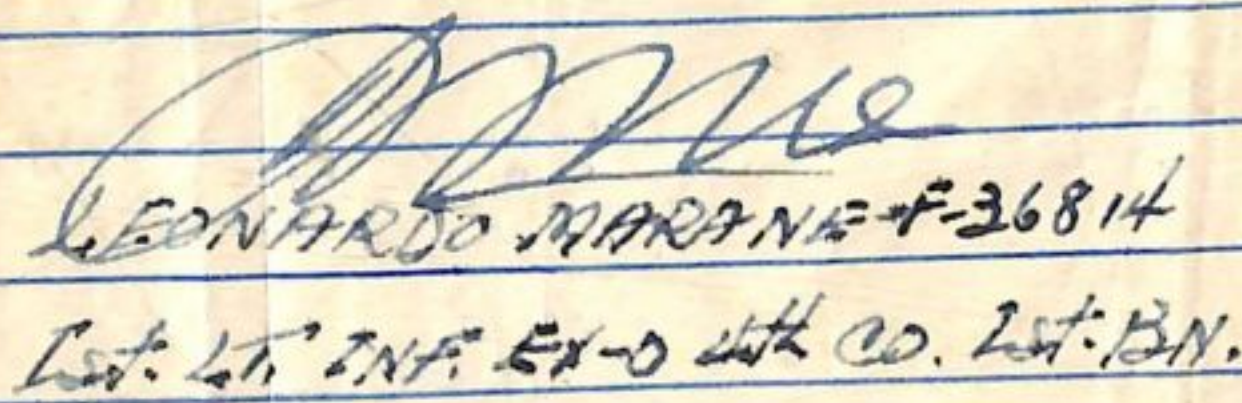 LEONARDO MARANE F-36814
1st. LT. INF. EX-O 4th CO. 1st. BN.